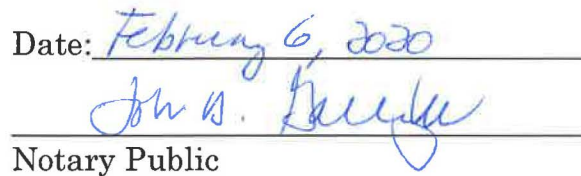 Date: February 6, 2020
John B.
Notary Public